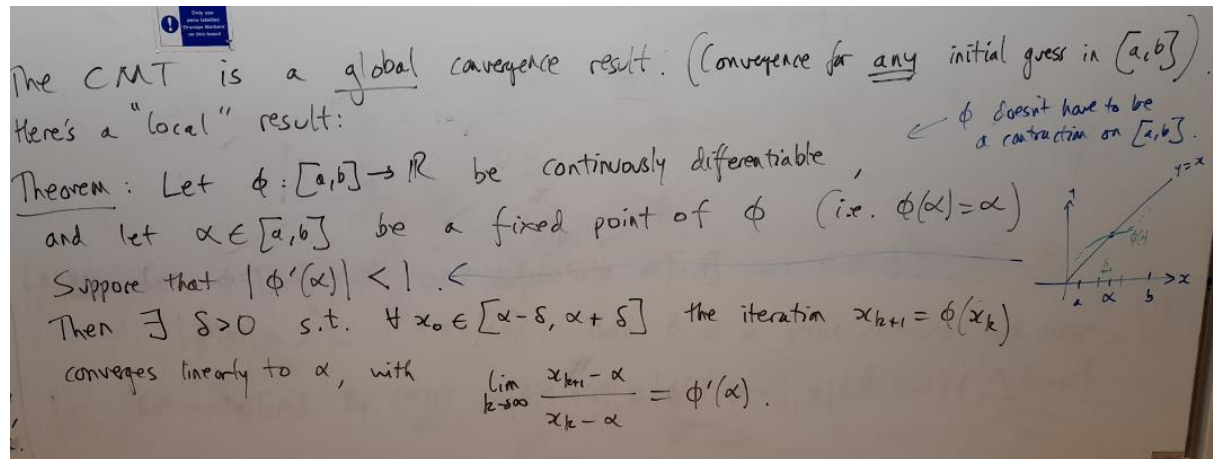 Only use
pens labelled
Drywipe Markers
on this board
The CMT is a global convergence result. (Convergence for any initial guess in [a,b]).
Here's a "local" result:
← ϕ doesn't have to be
a contraction on [a,b].
Theorem: Let ϕ : [a,b] → ℝ be continuously differentiable,
and let α ∈ [a,b] be a fixed point of ϕ (i.e. ϕ(α)=α)
Suppose that |ϕ'(α)| < 1. ←
Then ∃ δ>0 s.t. ∀ x₀ ∈ [α-δ, α+δ] the iteration xₖ₊₁ = ϕ(xₖ)
converges linearly to α, with lim k→∞ (xₖ₊₁ - α)/(xₖ - α) = ϕ'(α).
y=x
a α b → x